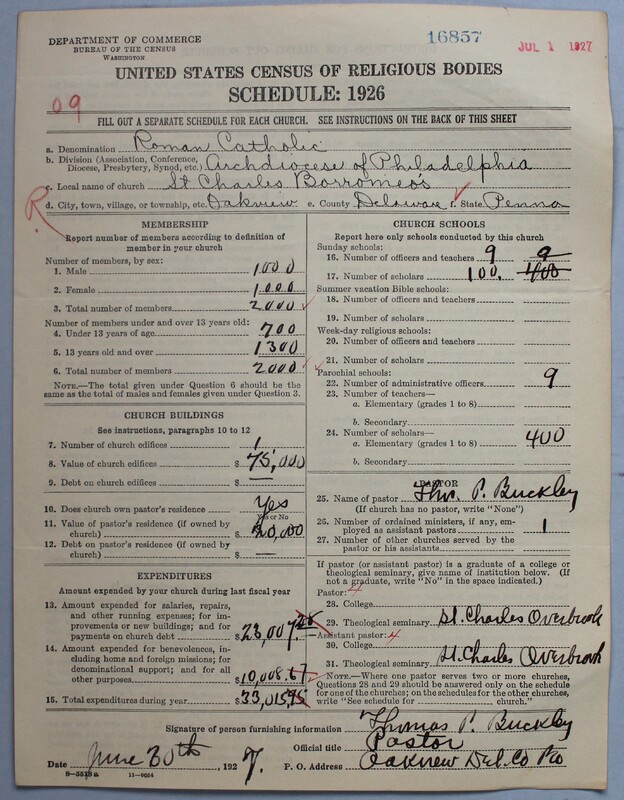 DEPARTMENT OF COMMERCE
BUREAU OF THE CENSUS
WASHINGTON
16857
JUL 1 1927
UNITED STATES CENSUS OF RELIGIOUS BODIES
SCHEDULE: 1926
09
FILL OUT A SEPARATE SCHEDULE FOR EACH CHURCH. SEE INSTRUCTIONS ON THE BACK OF THIS SHEET
a. Denomination Roman Catholic
b. Division (Association, Conference, Diocese, Presbytery, Synod, etc.) Archdiocese of Philadelphia
c. Local name of church St Charles Borromeos
d. City, town, village, or township, etc. Oakview e. County Delaware f. State Penna
R
MEMBERSHIP
Report number of members according to definition of
member in your church
Number of members, by sex:
1. Male 1000
2. Female 1000
3. Total number of members 2000
Number of members under and over 13 years old:
4. Under 13 years of age 700
5. 13 years old and over 1300
6. Total number of members 2000
NOTE.—The total given under Question 6 should be
same as the total of males and females given under Question 3.
CHURCH BUILDINGS
See instructions, paragraphs 10 to 12
7. Number of church edifices 1
8. Value of church edifices $ 75,000
9. Debt on church edifices $ —
10. Does church own pastor's residence Yes
Yes or No
11. Value of pastor's residence (if owned by
church) $ 20,000
12. Debt on pastor's residence (if owned by
church) $ —
EXPENDITURES
Amount expended by your church during last fiscal year
13. Amount expended for salaries, repairs,
and other running expenses; for im-
provements or new buildings; and for
payments on church debt $ 23,007.28
14. Amount expended for benevolences, in-
cluding home and foreign missions; for
denominational support; and for all
other purposes $ 10,008.67
15. Total expenditures during year $ 33,015.95
CHURCH SCHOOLS
Report here only schools conducted by this church
Sunday schools:
16. Number of officers and teachers 9 9
17. Number of scholars 100. 400
Summer vacation Bible schools:
18. Number of officers and teachers
19. Number of scholars
Week-day religious schools:
20. Number of officers and teachers
21. Number of scholars
Parochial schools:
22. Number of administrative officers 9
23. Number of teachers—
a. Elementary (grades 1 to 8)
b. Secondary
24. Number of scholars—
a. Elementary (grades 1 to 8) 400
b. Secondary
PASTOR
25. Name of pastor Thos. P. Buckley
(If church has no pastor, write "None")
26. Number of ordained ministers, if any, em-
ployed as assistant pastors 1
27. Number of other churches served by the
pastor or his assistants
If pastor (or assistant pastor) is a graduate of a college or
theological seminary, give name of institution below. (If
not a graduate, write "No" in the space indicated.)
Pastor: 4
28. College
29. Theological seminary St. Charles Overbrook
Assistant pastor: 4
30. College
31. Theological seminary St. Charles Overbrook
NOTE.—Where one pastor serves two or more churches,
Questions 28 and 29 should be answered only on the schedule
for one of the churches; on the schedules for the other churches,
write "See schedule for church."
Signature of person furnishing information Thomas P. Buckley
Official title Pastor
Date June 30th, 1927. P. O. Address Oakview Del. Co Pa
8-5513a 11-9054